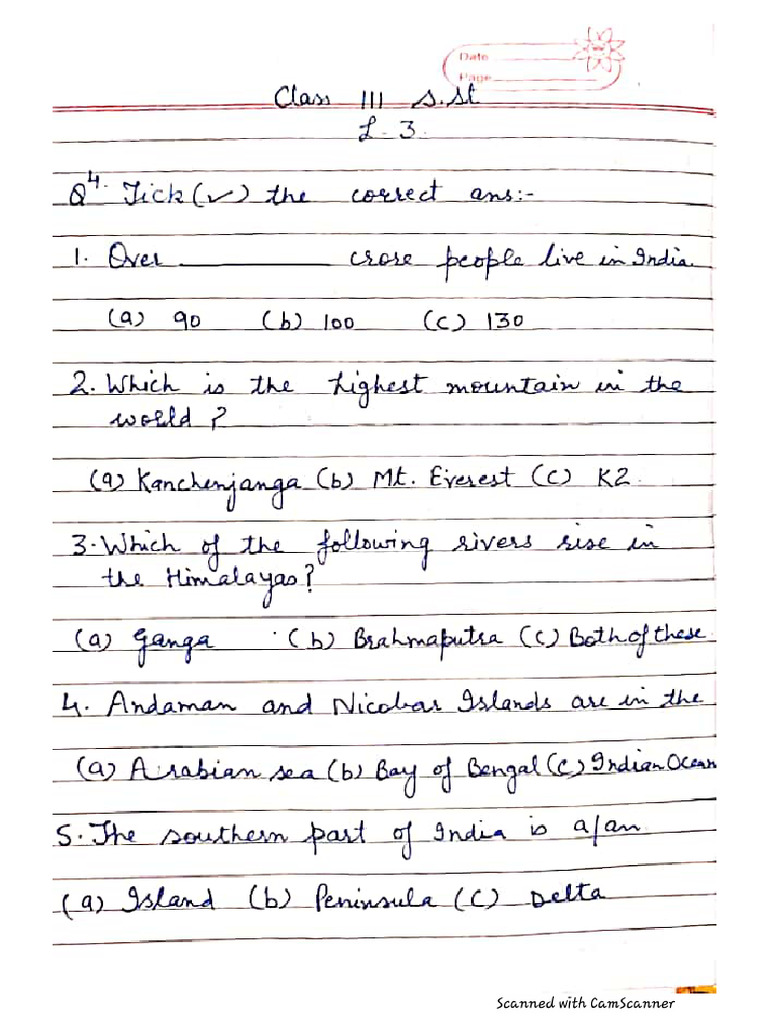 Date
Page
Class III S.St
L. 3.
Q4. Tick (✓) the correct ans:-
1. Over __________ crore people live in India.
(a) 90 (b) 100 (c) 130
2. Which is the highest mountain in the
world?
(a) Kanchenjanga (b) Mt. Everest (c) K2.
3. Which of the following rivers rise in
the Himalayas?
(a) Ganga (b) Brahmaputra (c) Both of these
4. Andaman and Nicobar Islands are in the
(a) Arabian sea (b) Bay of Bengal (c) Indian Ocean
5. The southern part of India is a/an.
(a) Island (b) Peninsula (c) Delta
Scanned with CamScanner